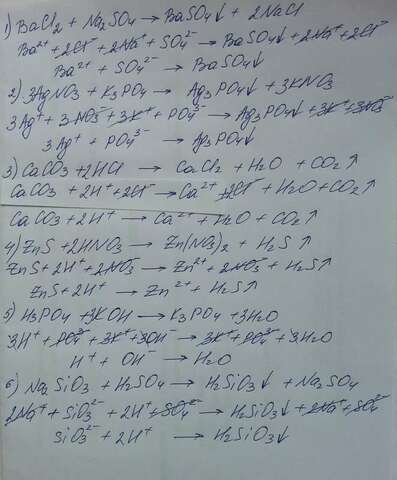 1) BaCl₂ + Na₂SO₄ → BaSO₄↓ + 2NaCl
Ba²⁺ + 2Cl⁻ + 2Na⁺ + SO₄²⁻ → BaSO₄↓ + 2Na⁺ + 2Cl⁻
Ba²⁺ + SO₄²⁻ → BaSO₄↓
2) 3AgNO₃ + K₃PO₄ → Ag₃PO₄↓ + 3KNO₃
3Ag⁺ + 3NO₃⁻ + 3K⁺ + PO₄³⁻ → Ag₃PO₄↓ + 3K⁺ + 3NO₃⁻
3Ag⁺ + PO₄³⁻ → Ag₃PO₄↓
3) CaCO₃ + 2HCl → CaCl₂ + H₂O + CO₂↑
CaCO₃ + 2H⁺ + 2Cl⁻ → Ca²⁺ + 2Cl⁻ + H₂O + CO₂↑
CaCO₃ + 2H⁺ → Ca²⁺ + H₂O + CO₂↑
4) ZnS + 2HNO₃ → Zn(NO₃)₂ + H₂S↑
ZnS + 2H⁺ + 2NO₃⁻ → Zn²⁺ + 2NO₃⁻ + H₂S↑
ZnS + 2H⁺ → Zn²⁺ + H₂S↑
5) H₃PO₄ + 3KOH → K₃PO₄ + 3H₂O
3H⁺ + PO₄³⁻ + 3K⁺ + 3OH⁻ → 3K⁺ + PO₄³⁻ + 3H₂O
H⁺ + OH⁻ → H₂O
6) Na₂SiO₃ + H₂SO₄ → H₂SiO₃↓ + Na₂SO₄
2Na⁺ + SiO₃²⁻ + 2H⁺ + SO₄²⁻ → H₂SiO₃↓ + 2Na⁺ + SO₄²⁻
SiO₃²⁻ + 2H⁺ → H₂SiO₃↓